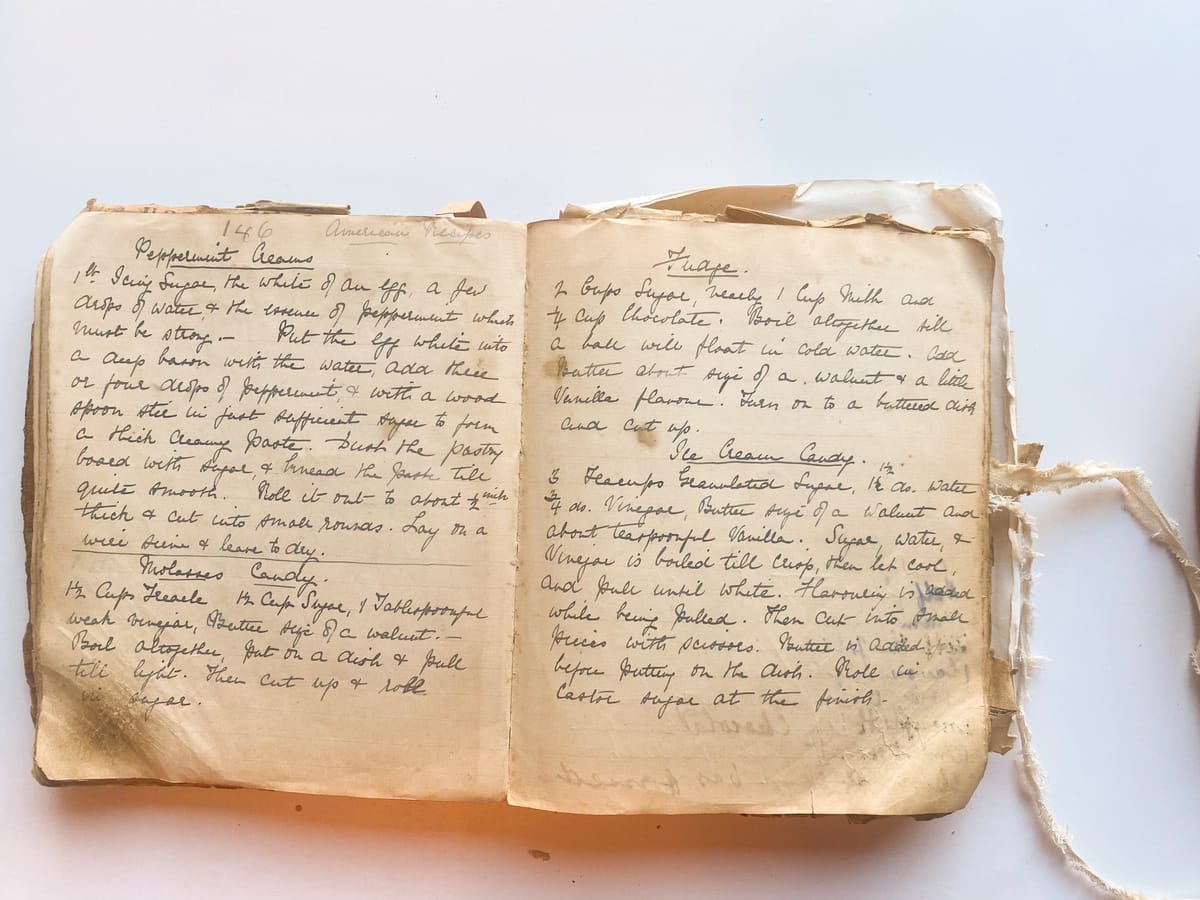 146 American Recipes
Peppermint Creams
1 lb Icing Sugar, the white of an egg, a few
drops of water, & the essence of peppermint which
must be strong. — Put the egg white into
a deep bason with the water, add three
or four drops of peppermint, & with a wood
spoon stir in just sufficient sugar to form
a thick creamy paste. Dust the pastry
board with sugar, & knead the paste till
quite smooth. Roll it out to about ½ inch
thick & cut into small rounds. Lay on a
wire sieve & leave to dry.
Molasses Candy.
1½ Cups Treacle 1½ Cup Sugar, 1 Tablespoonful
weak vinegar, Butter size of a walnut. —
Boil altogether, put on a dish & pull
till light. Then cut up & roll
in sugar.
Fudge.
2 Cups Sugar, nearly 1 Cup Milk and
¼ Cup Chocolate. Boil altogether till
a ball will float in cold water. Add
Butter about size of a walnut & a little
Vanilla flavour. Turn on to a buttered dish
and cut up.
Ice Cream Candy.
3 Teacups Granulated Sugar, 1½ do. water
¾ do. Vinegar, Butter size of a walnut and
about teaspoonful Vanilla. Sugar, water, &
Vinegar is boiled till crisp, then let cool,
and pull until white. Flavouring is added
while being pulled. Then cut into small
pieces with scissors. Butter is added
before putting on the dish. Roll in
Castor sugar at the finish.